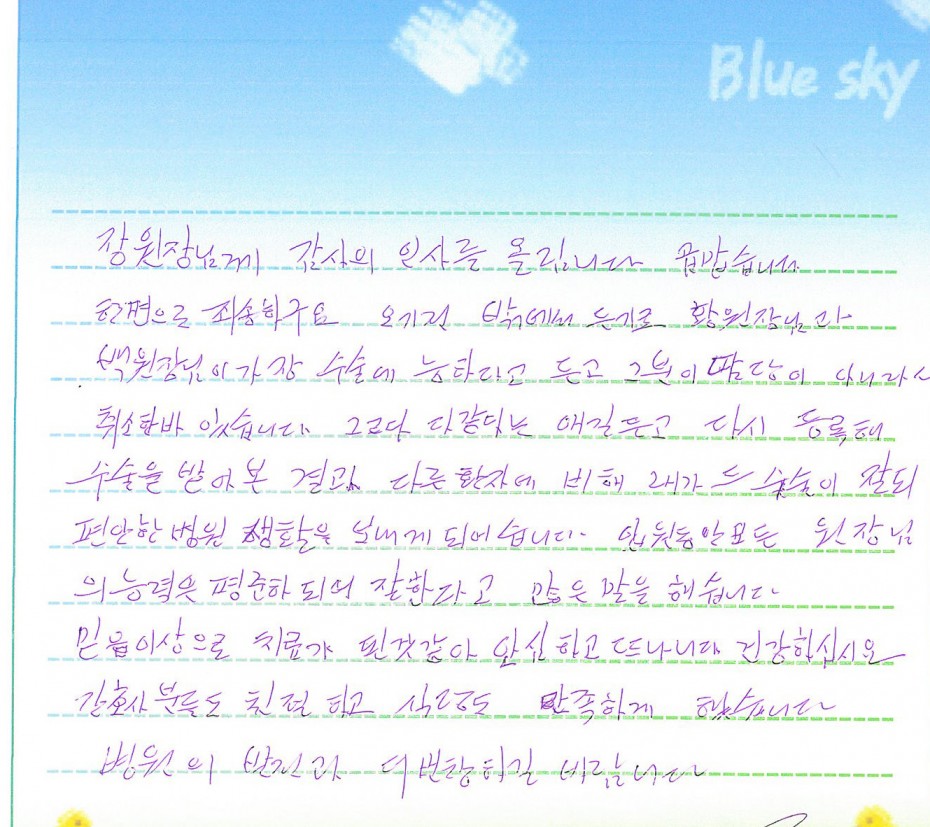 Blue sky
장원장님게 감사의 인사를 올림니다 곰맙습니다
한편으로 죄송하구요 오기전 밖에서 듣기로 황원장님과
백원장님이 가장 수술에 능하다고 듣고 그분이 담당이 아니라서
취소한바 있습니다. 그르다 다같다는 얘길듣고 다시 등록해
수술을 받아 본 결과 다른 환자에 비해 내가 수술이 잘되
편안한 병원 생활을 보내게 되어습니다. 입원동안 모든 원장님
의 능력은 평준하 되어 잘한다고 많은 말을 해습니다
믿음이상으로 치료가 된것같아 안심하고 떠나니다 건강하십시요
간호사분들도 친절하고 식당도 만족하게 했습니다
병원의 발전과 더번창하길 바람니다